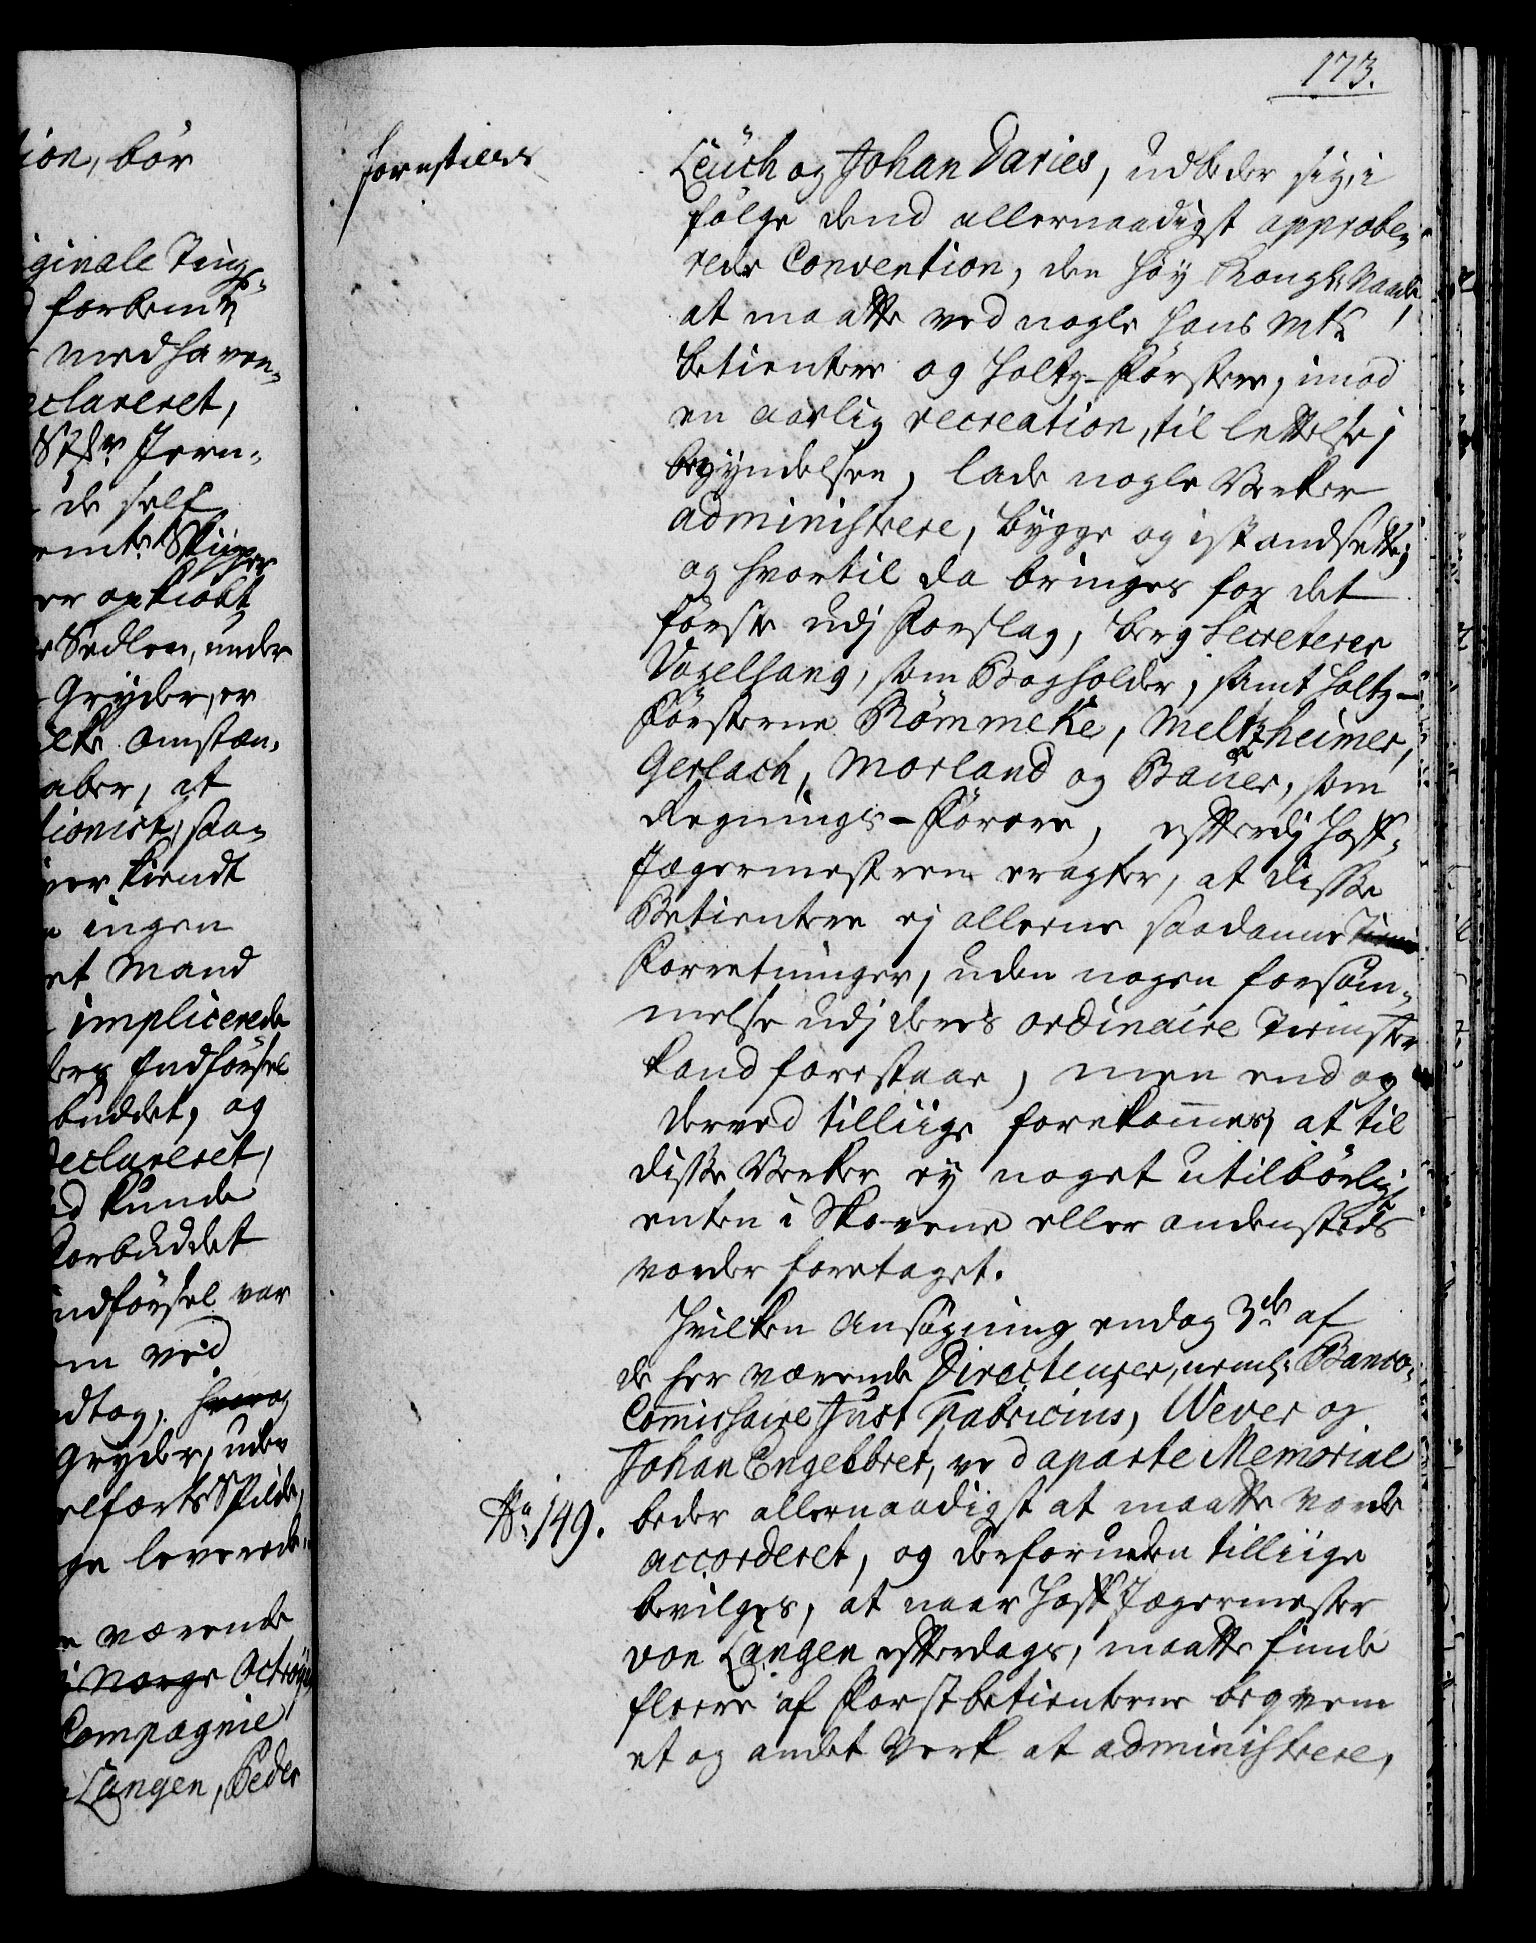 ion, bör
ginale Ting-
forbemte
medhaven-
clareret,
Jern-
de self
er opkiöbt
Sedlen, under
Gryder, er
omstæn-
aber, at
tionist, saa-
kiendt
ingen
et Mand
implicerede
Indförsel
buddet, og
declareret,
kunde
Forbuddet
ndförsel var
ved
dtog,
Gryder, uden
ge leverede
værende
i Norge Octroÿe
Compagnie
Langen, Peder
173.
forestilles
Leüch og Johan Daries, udbeder sig, i
fölge dend allernaadigst approbe-
rede Convention, den höy Kongl: Naade,
at maatte ved nogle Hans Mts
betientere og Holtz-Förstere, imod
en aarlig recreation, til lettelse i
begyndelsen, lade nogle Verker
administrere, bygge og istandsette;
og hvortil da bringes for det
förste udj Forslag, berg Secreterer
Vogelsang, som Bogholder, samt Holtz-
Försterne Römmeke, Meltzheimer,
Gerlach, Morland og Bauer, som
Regnings-Förere, efterdj Hoff-
Jægermesteren eragter, at disse
Betientere ej alleene saadanne
Forretninger, uden nogen forsöm-
melse udj deres ordinaire Tieniste
kand forestaae, men end og
derved tilliige forekommes, at til
disse Verker ey noget utilbörligt
enten i Skovene eller andensteds
vorder foretaget.
Hvilken Ansögning endog 3de af
de her værende Directeurer, neml: Banco-
Commissaire Just Fabricius, Wever og
Johan Engelbret, ved aparte Memorial
No 149. beder allernaadigst at maatte vorde
accorderet, og desforuden tilliige
bevilges, at naar Hoff Jægermester
von Langen efterdags, maatte finde
fleere af Forstbetienterne beqvem
et og andet Verk at administrere,